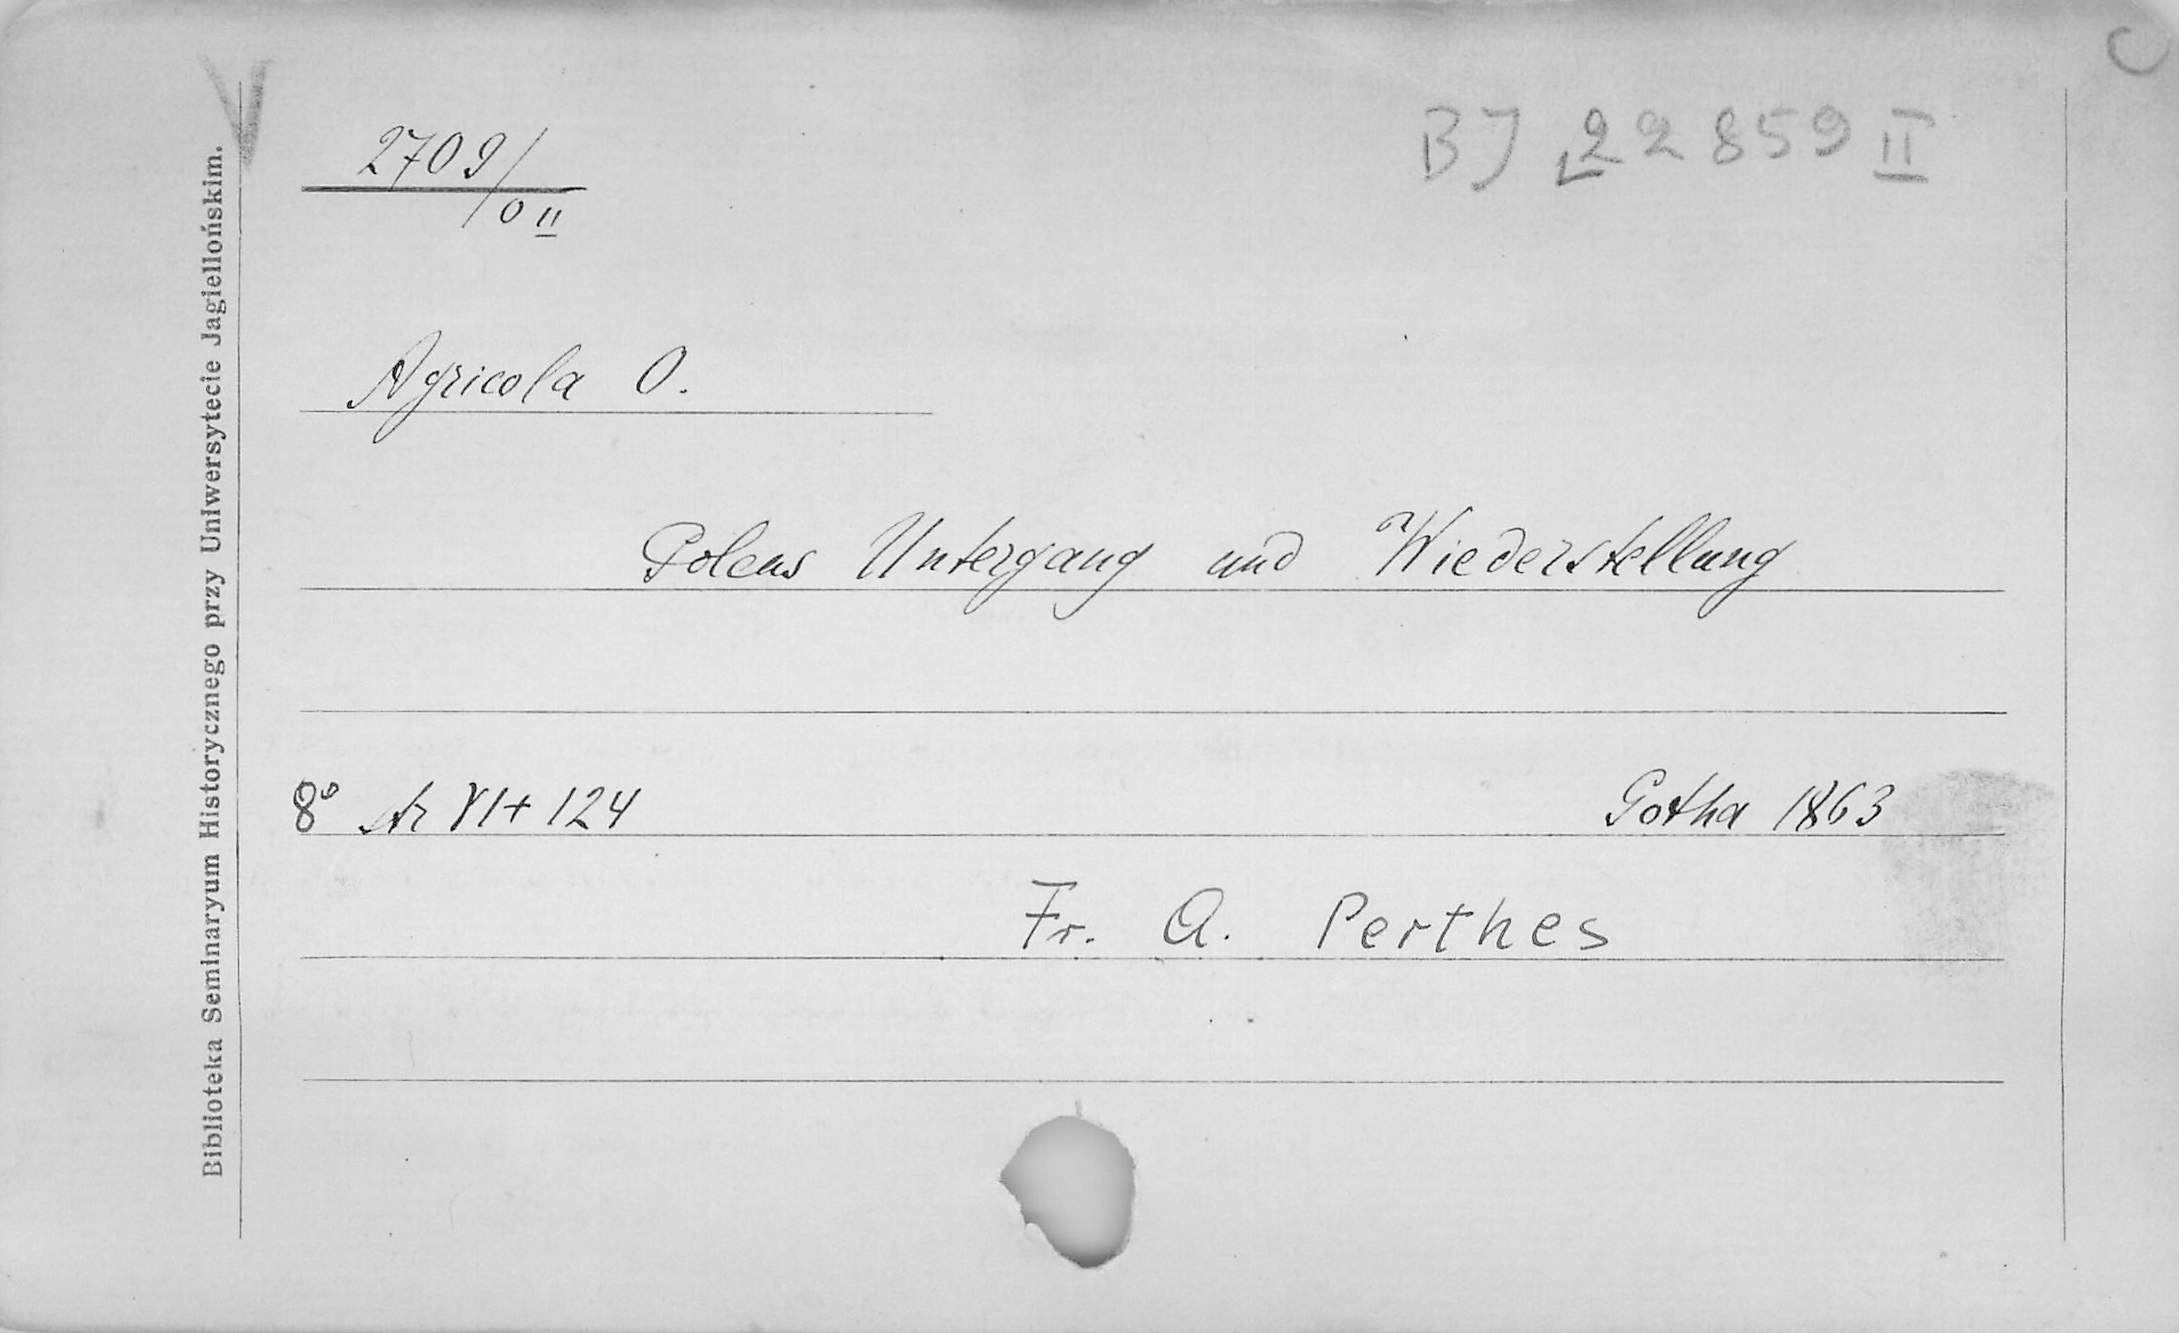 2709/
O II
BJ 22859 II
Agricola O.
Polens Untergang und Wiederstellung
8° str VI + 124
Gotha 1863
Fr. A. Perthes
Biblioteka Seminaryum Historycznego przy Uniwersytecie Jagiellońskim.